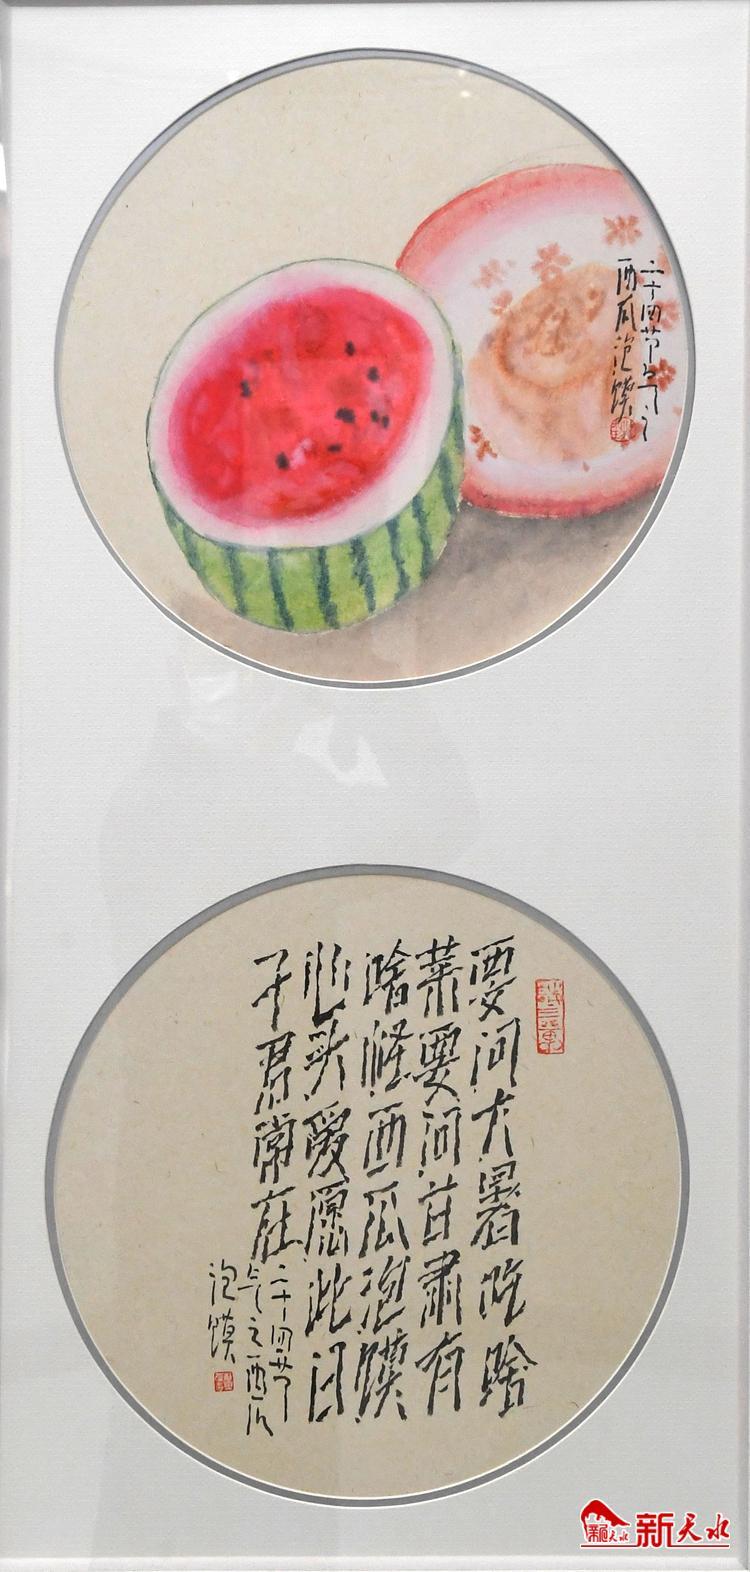 二十四节气之
西瓜泡馍
要问大暑吃啥
菜要问甘肃有
啥怪西瓜泡馍
心头爱愿此日
子君常在
二十四节
气之西瓜
泡馍
新天水